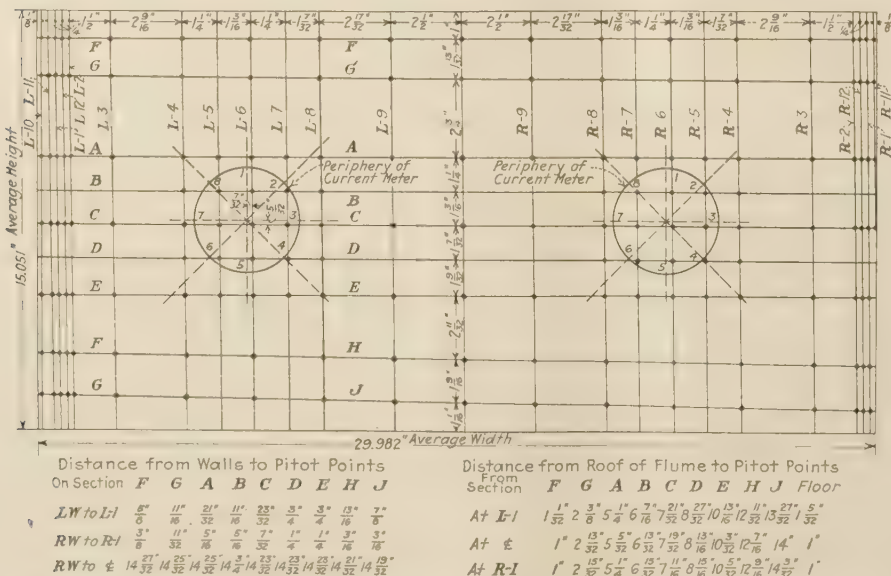 1/8" 1/4" 1 1/2" 2 9/16" 1 1/4" 1 3/16" 1 1/4" 1 7/32" 2 17/32" 2 1/2" 2 1/2" 2 17/32" 1 3/16" 1 1/4" 1 3/16" 1 7/32" 2 9/16" 1 1/2" 1/4" 1/8"
F F
G G
L-10 L-11 L-1 L-12 L-2 L-3 L-4 L-5 L-6 L-7 L-8 L-9 R-9 R-8 R-7 R-6 R-5 R-4 R-3 R-2 R-12 R-1 R-11
A A
Periphery of
Current Meter
Periphery of
Current Meter
B B
C C
D D
E E
F H
G J
1 2 3 4 5 6 7 8
1 2 3 4 5 6 7 8
15.051" Average Height
29.982" Average Width
Distance from Walls to Pitot Points
On Section F G A B C D E H J
LW to L-1 5/8" 11/16" 21/32" 11/16" 23/32" 3/4" 3/4" 13/16" 7/8"
RW to R-1 3/8" 11/32" 5/16" 5/16" 7/32" 1/4" 1/4" 3/16" 3/16"
RW to ℄ 14 27/32" 14 25/32" 14 25/32" 14 3/4" 14 23/32" 14 23/32" 14 23/32" 14 21/32" 14 19/32"
Distance from Roof of Flume to Pitot Points
From Section F G A B C D E H J Floor
At L-1 1 1/32" 2 3/8" 5 1/4" 6 7/16" 7 21/32" 8 27/32" 10 13/16" 12 11/32" 13 27/32" 1 5/32"
At ℄ 1" 2 13/32" 5 5/32" 6 13/32" 7 19/32" 8 13/16" 10 3/32" 12 7/16" 14" 1"
At R-1 1" 2 15/32" 5 1/4" 6 13/32" 7 11/16" 8 15/16" 10 5/16" 12 9/16" 14 3/32" 1"